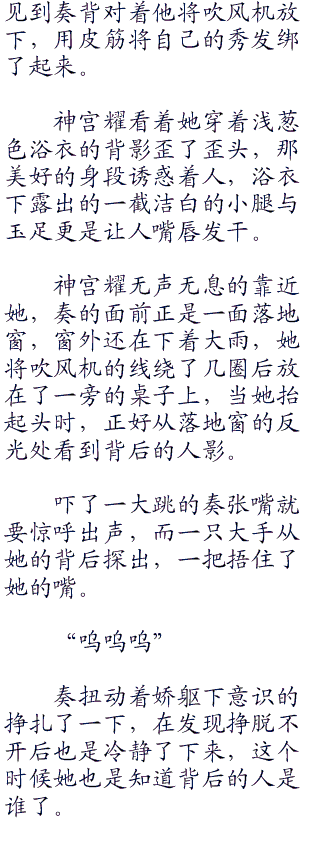 见到奏背对着他将吹风机放
下，用皮筋将自己的秀发绑
了起来。
神宫耀看着她穿着浅葱
色浴衣的背影歪了歪头，那
美好的身段诱惑着人，浴衣
下露出的一截洁白的小腿与
玉足更是让人嘴唇发干。
神宫耀无声无息的靠近
她，奏的面前正是一面落地
窗，窗外还在下着大雨，她
将吹风机的线绕了几圈后放
在了一旁的桌子上，当她抬
起头时，正好从落地窗的反
光处看到背后的人影。
吓了一大跳的奏张嘴就
要惊呼出声，而一只大手从
她的背后探出，一把捂住了
她的嘴。
“呜呜呜”
奏扭动着娇躯下意识的
挣扎了一下，在发现挣脱不
开后也是冷静了下来，这个
时候她也是知道背后的人是
谁了。